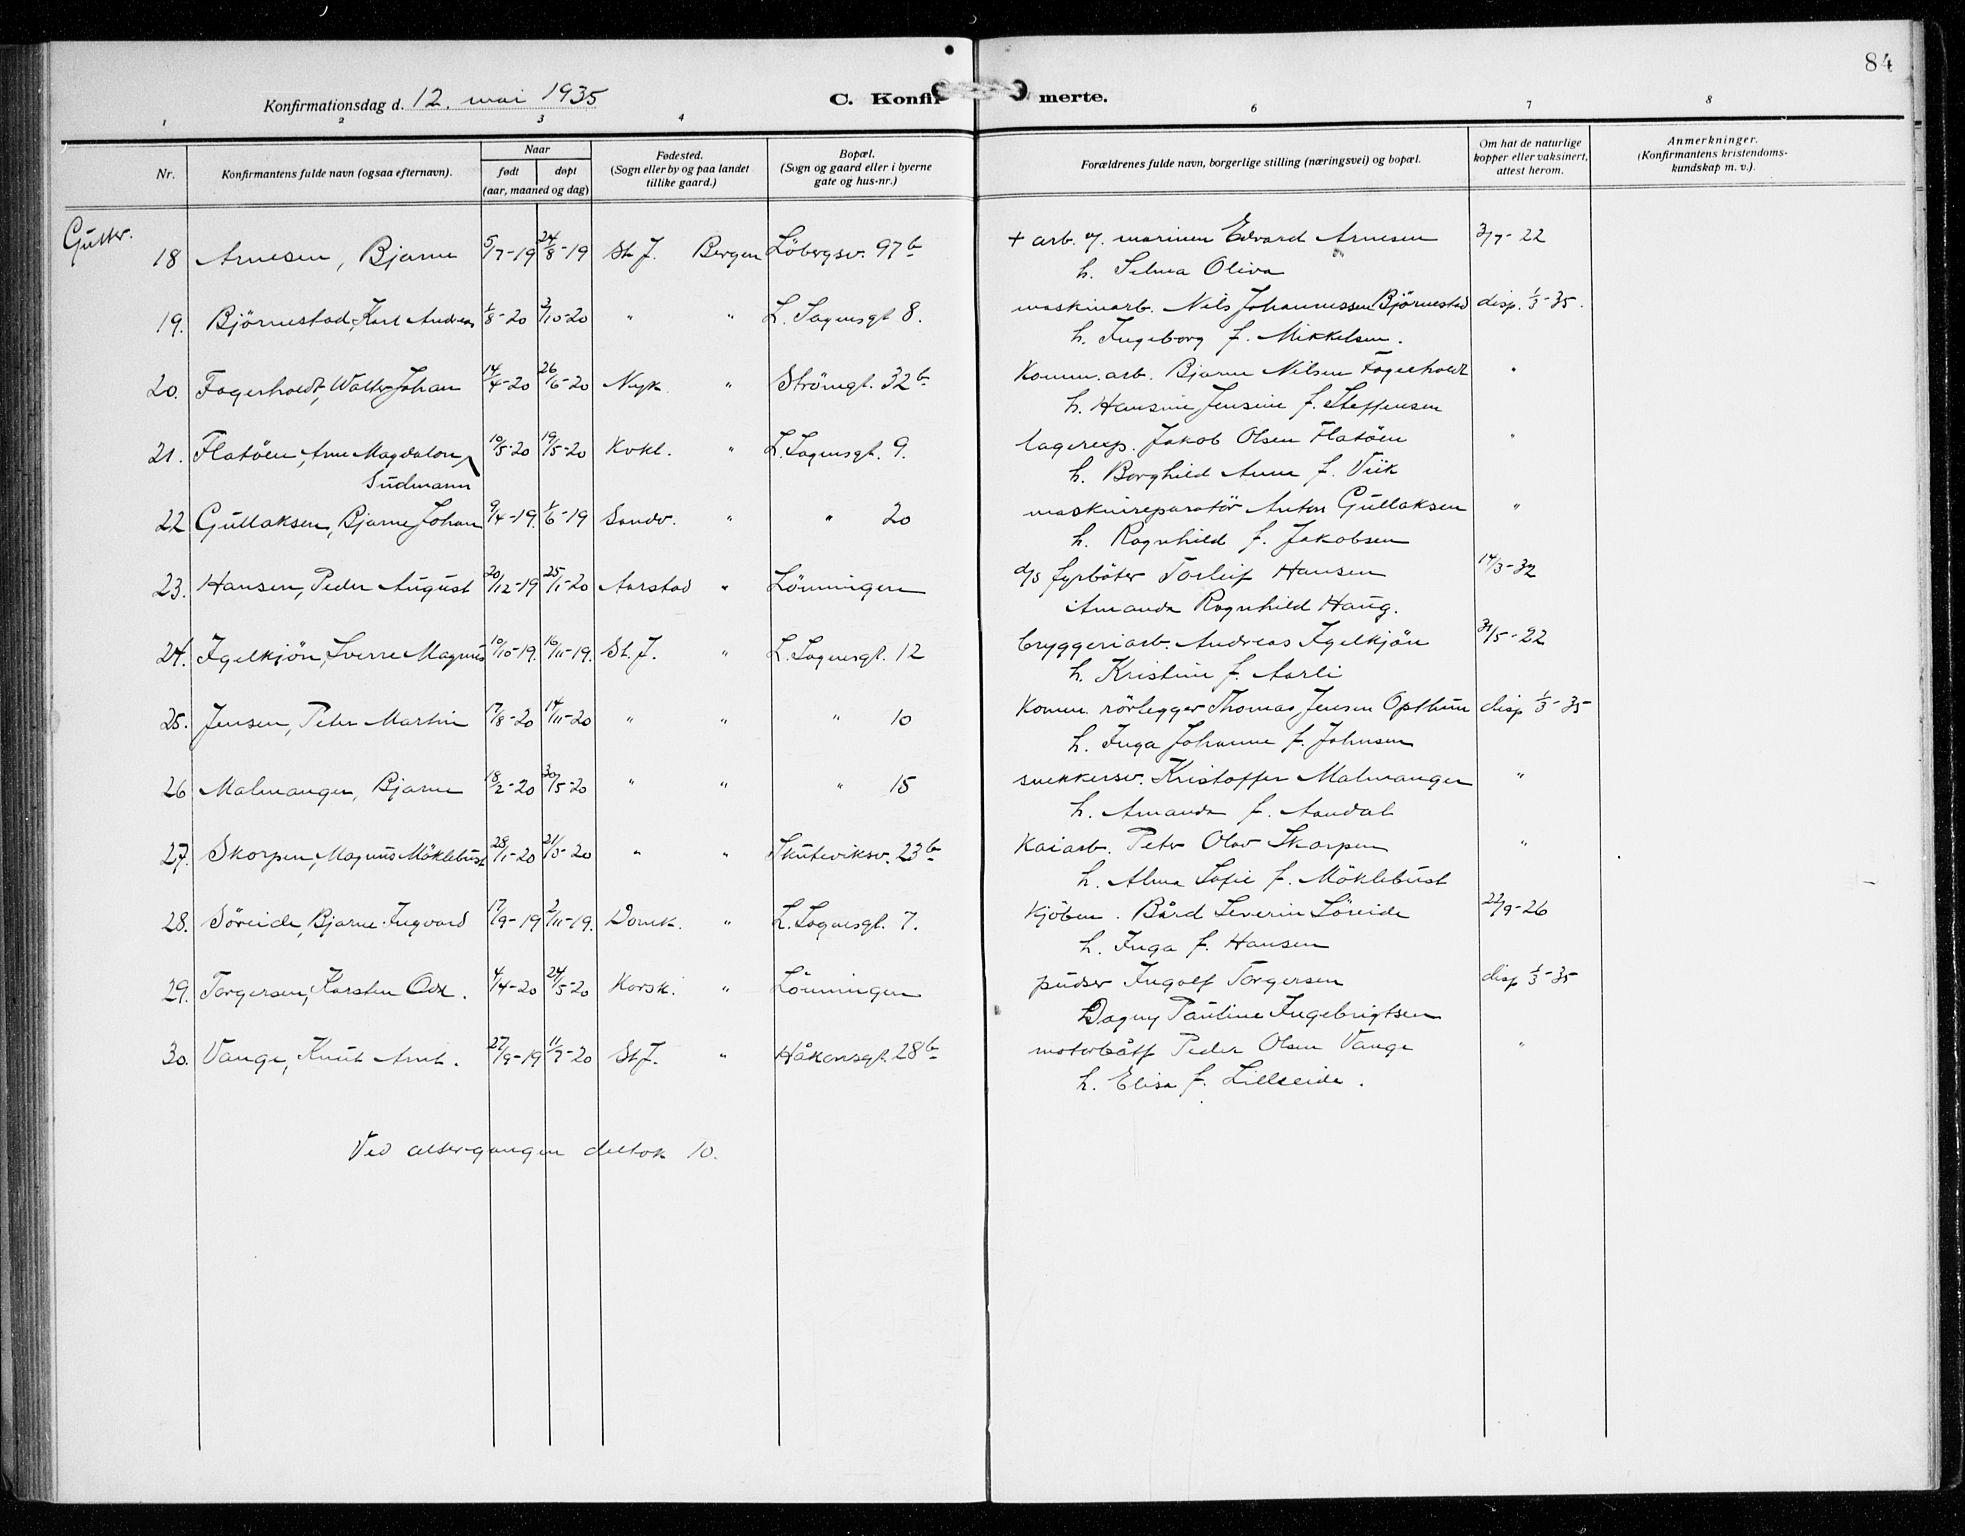 84
Konfirmationsdag d. 12. mai 1935
C. Konfir merte.
1 2 3 4 6 7 8
Nr.
Konfirmantens fulde navn (ogsaa efternavn).
Naar
født døpt
(aar, maaned og dag)
Fødested.
(Sogn eller by og paa landet
tillike gaard.)
Bopæl.
(Sogn og gaard eller i byerne
gate og hus-nr.)
Forældrenes fulde navn, borgerlige stilling (næringsvei) og bopæl.
Om hat de naturlige
kopper eller vaksinert,
attest herom.
Anmerkninger.
(Konfirmantens kristendoms-
kundskap m. v.).
Gutter.
18 Arnesen, Bjarne 5/7-19 24/8-19 St. J. Bergen Löbergsv. 97b + arb. v. marinen Edvard Arnesen 3/7-22
h. Selma Oliva
19. Björnestad, Karl Andreas 1/8-20 3/10-20 " " L. Sagensgt 8. maskinarb. Nils Johannessen Björnestad disp. 1/3-35.
h. Ingeborg f. Mikkelsen.
20. Fagerholdt, Walter Johan 14/4-20 26/6-20 Nyk. " Strömgt. 32b Komm. arb. Bjarne Nilsen Fagerholdt "
h. Hansine Jensine f. Steffensen
21. Flatöen, Arne Magdalon 10/5-20 19/5-20 Kvkl. " L. Sagensgt. 9. lagerexp. Jakob Olsen Flatöen "
Sudmann h. Borghild Anna f. Viik
22 Gullaksen, Bjarne Johan 9/4-19. 1/6-19 Sandv. " " 20 maskinreparatör Anton Gullaksen "
h. Ragnhild f. Jakobsen
23. Hansen, Peder August 20/12-19 25/1-20 Aarstad " Lönningen d/s fyrböter Torleif Hansen 14/3-32
Amanda Ragnhild Haug.
24. Igelkjön, Sverre Magnus 10/10-19. 16/11-19. St. J. " L. Sagensgt. 12 bryggeriarb. Andreas Igelkjön 31/5-22
h. Kristine f. Aarli
25. Jensen, Peter Martin 17/8-20 14/11-20 " " " 10 Komm. rörlegger Thomas Jensen Opthun disp 1/3-35
h. Inga Johanne f. Johnsen
26 Malmanger, Bjarne 18/2-20 30/5-20 " " " 15 snekkersv. Kristoffer Malmanger "
h. Amanda f. Aandal
27. Skorpen, Magnus Möklebust 28/1-20 21/3-20 " " Skuteviksv. 23b Kaiarb. Peter Olav Skorpen "
h. Alma Sofie f. Möklebust
28. Söreide, Bjarne Ingvard 17/9-19 2/11-19. Domk. " L. Sagensgt. 7. Kjöbm. Bård Severin Söreide 22/9-26
h. Inga f. Hansen
29. Torgersen, Karsten Odd. 4/4-20 24/5-20 Korsk. " Lönningen pudser Ingolf Torgersen disp 1/3-35
Dagny Pauline Ingebrigtsen
30. Vange, Knut Arnt. 27/9-19 11/7-20 St J. " Håkonsgt. 28b motorbåtf Peder Olsen Vange "
h. Elisa f. Lilleeide.
Ved altergangen deltok 10.